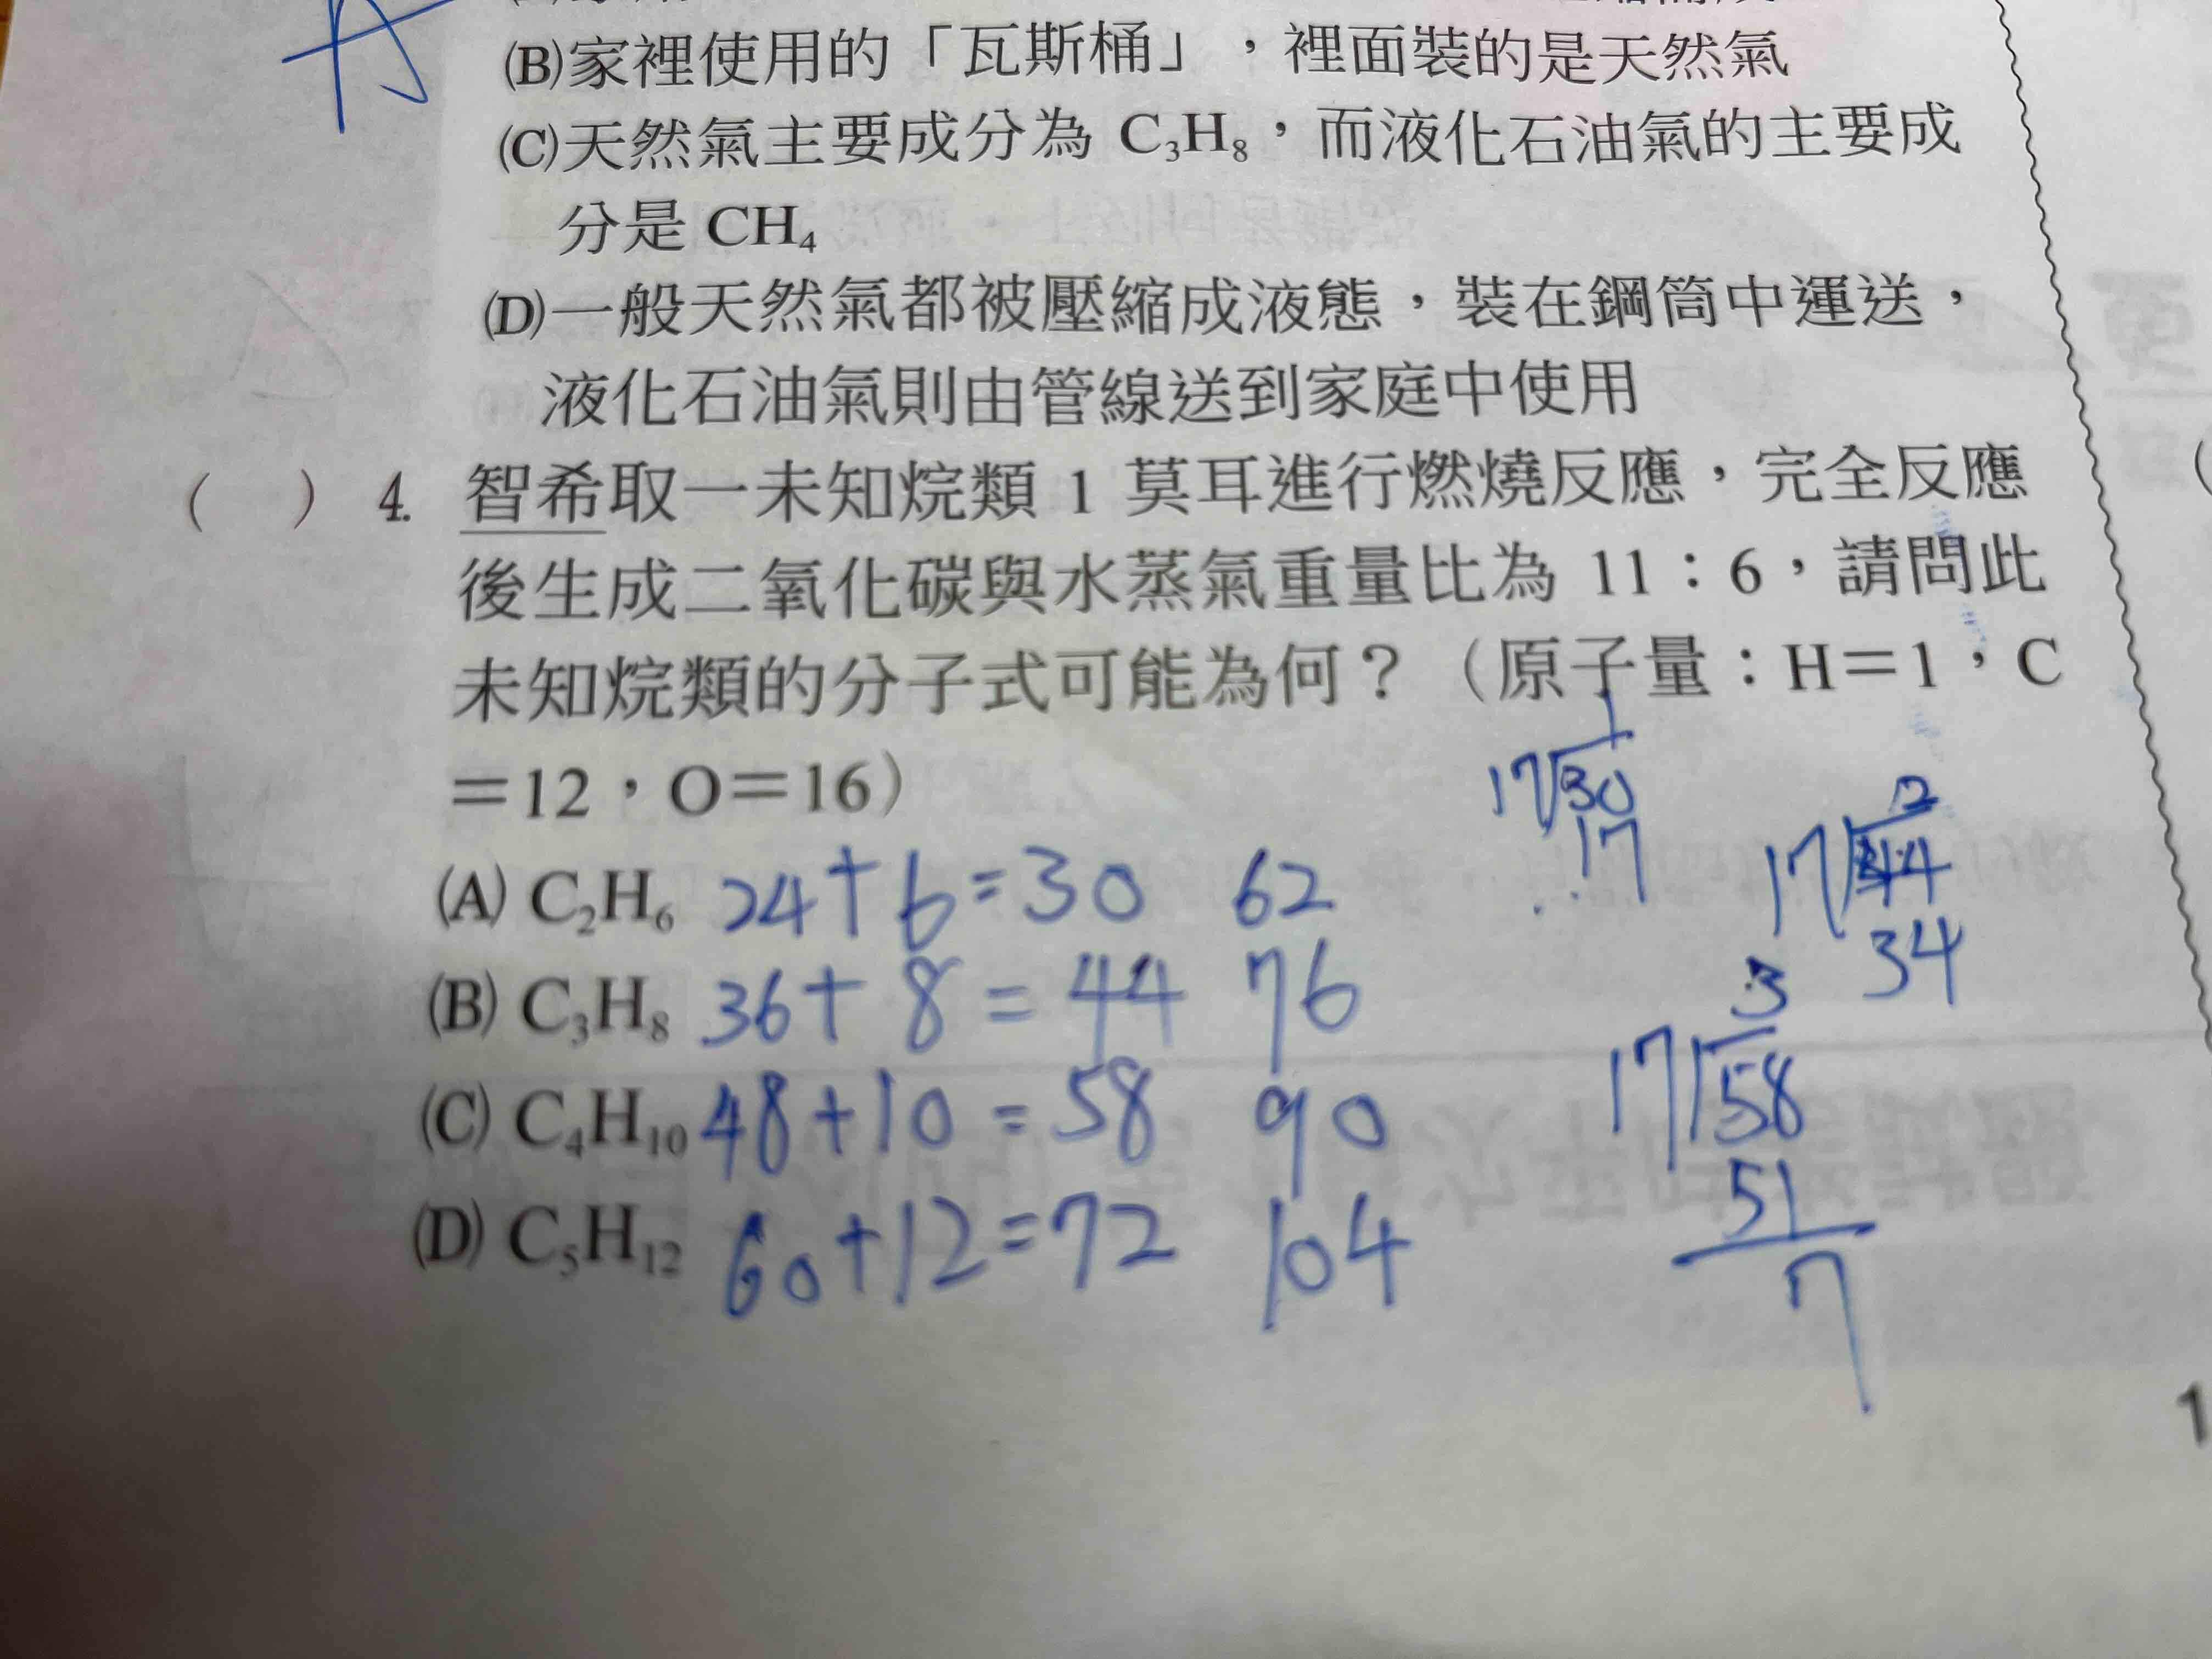 (B)家裡使用的「瓦斯桶」,裡面裝的是天然氣
(C)天然氣主要成分為 C₃H₈,而液化石油氣的主要成
分是 CH₄
(D)一般天然氣都被壓縮成液態,裝在鋼筒中運送,
液化石油氣則由管線送到家庭中使用
( ) 4. 智希取一未知烷類 1 莫耳進行燃燒反應,完全反應
後生成二氧化碳與水蒸氣重量比為 11:6,請問此
未知烷類的分子式可能為何?(原子量:H=1,C
=12,O=16)
(A) C₂H₆ 24+6=30 62
(B) C₃H₈ 36+8=44 76
(C) C₄H₁₀ 48+10=58 90
(D) C₅H₁₂ 60+12=72 104
1
17 30
17
2
17 44
34
3
17 58
51
7
1